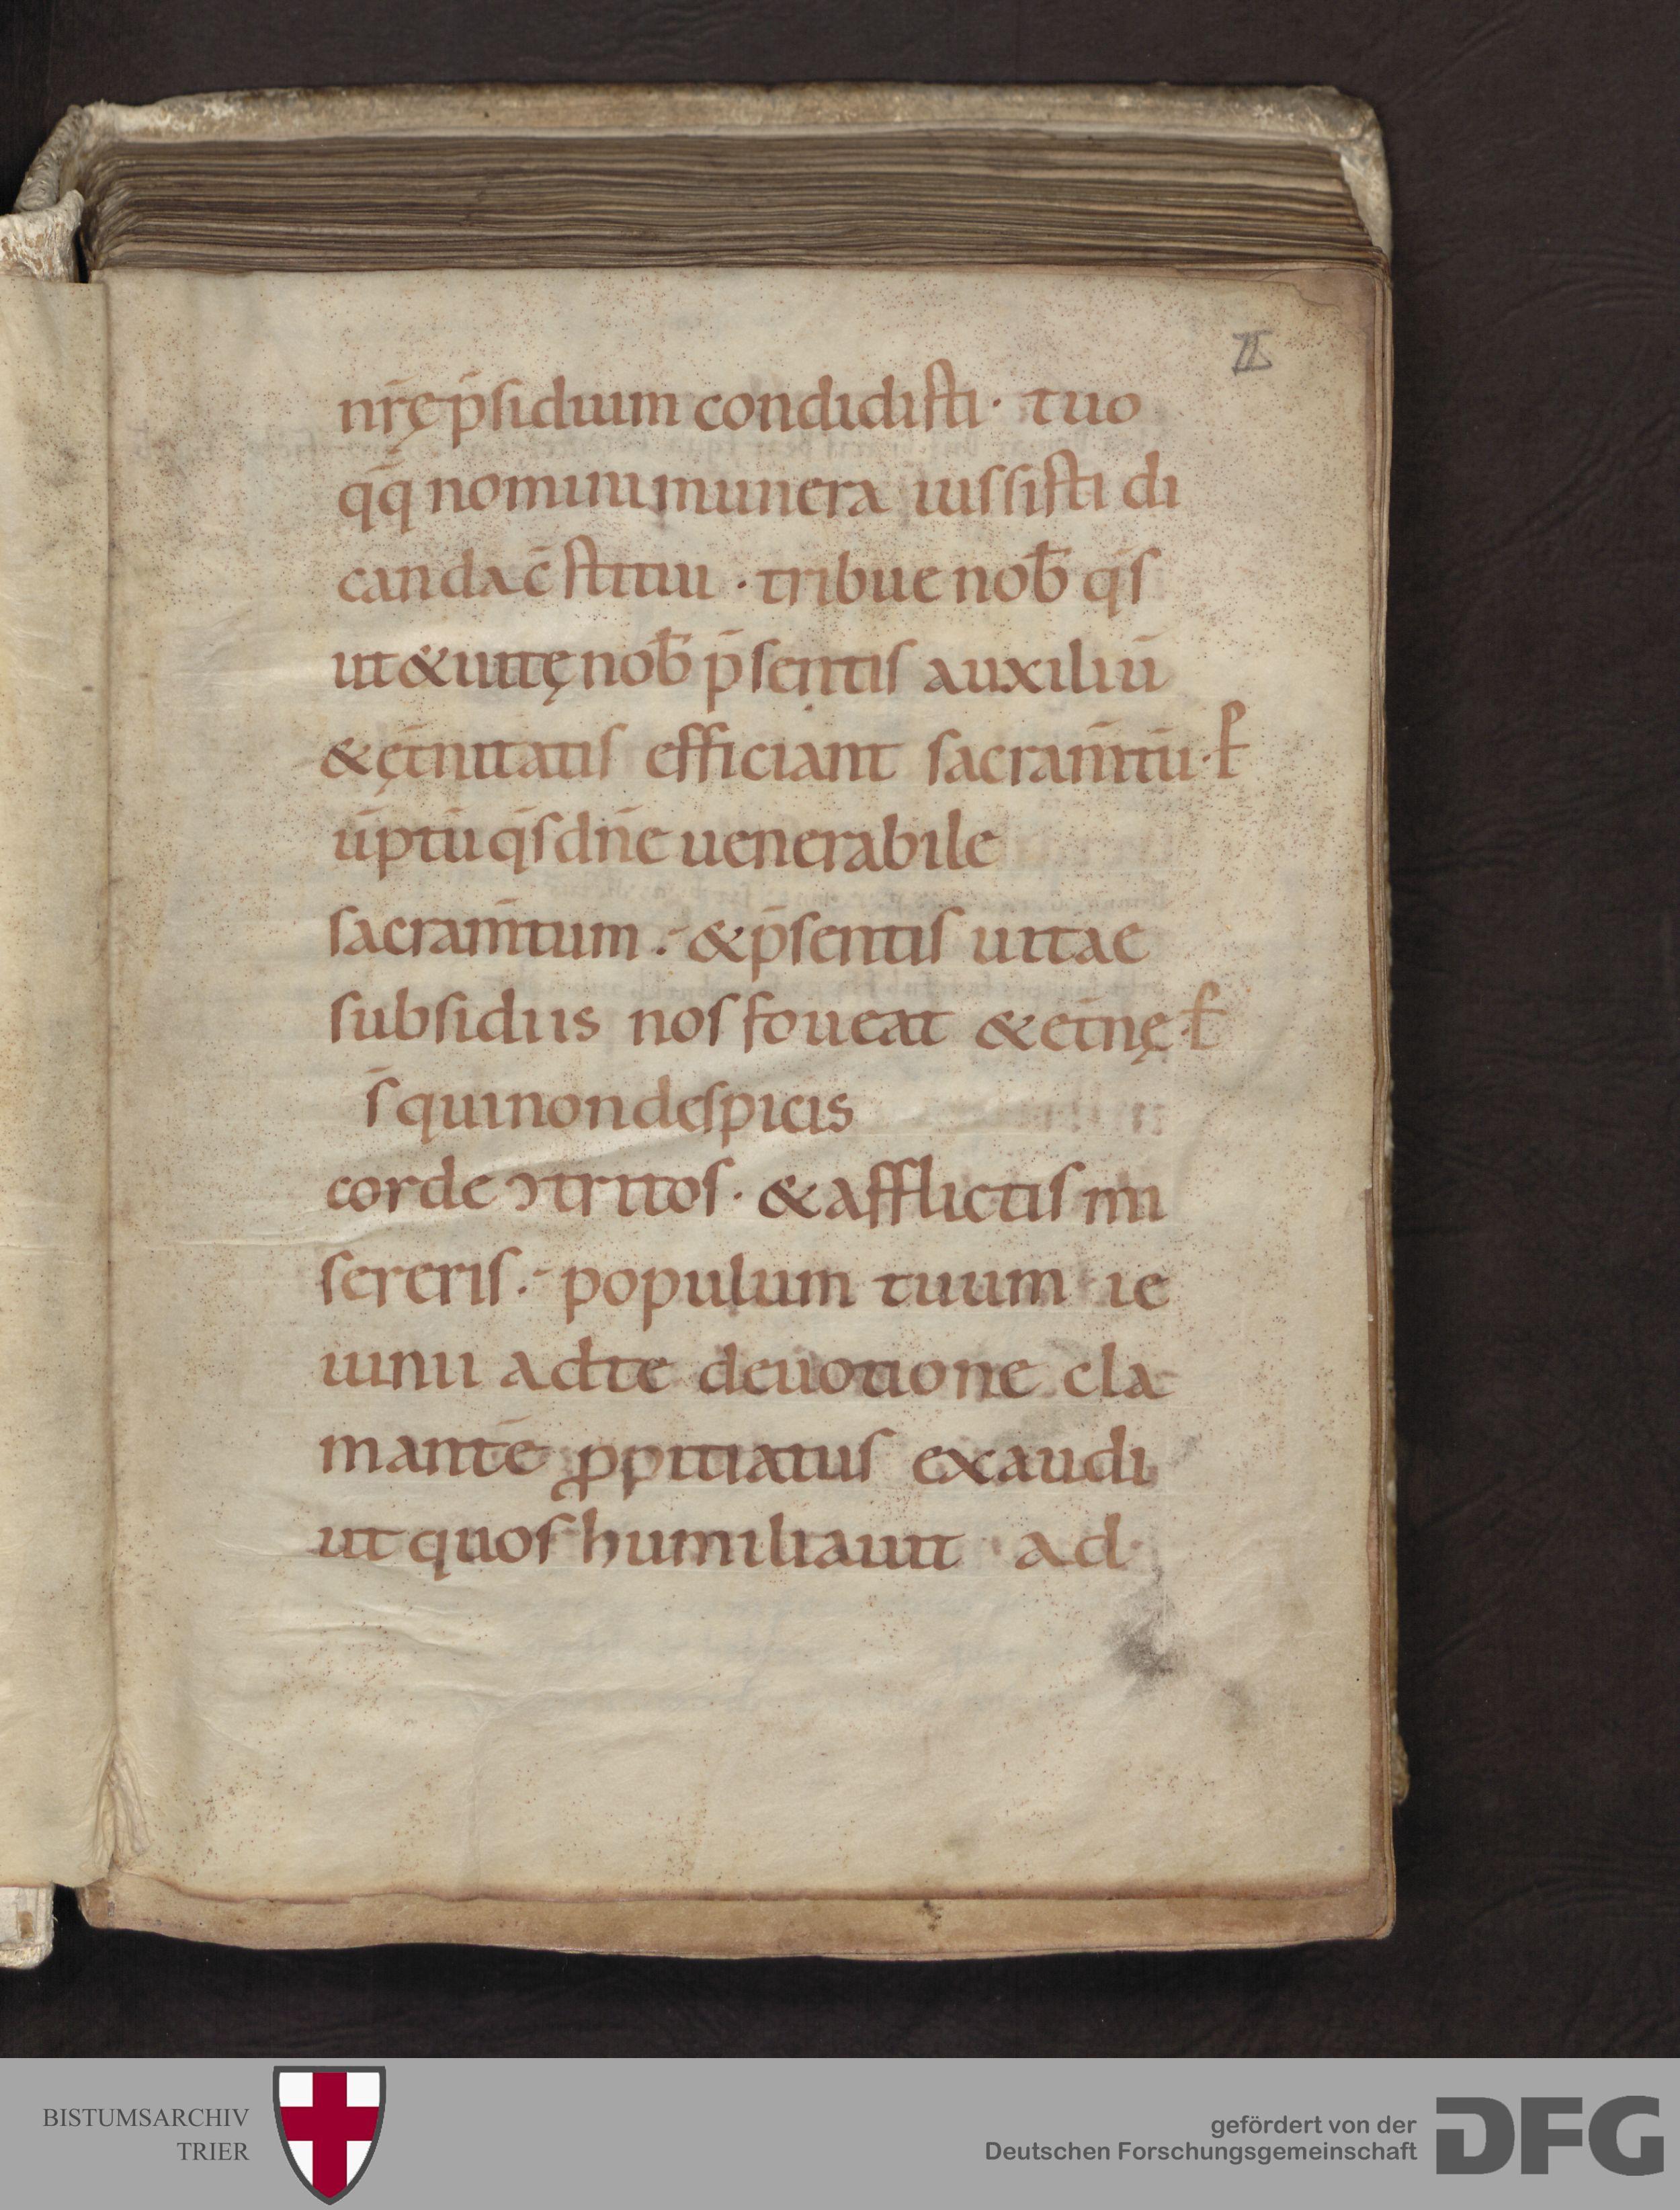 II
nr̄ę p̄sidium condidisti · tuo
q̄q nomini munera iussisti di
canda c̄stitui · tribue nob̄ q̄s
ut & uitę nob̄ p̄sentis auxiliū
& ęt̄nitatis efficiant sacram̄tū · ꝑ
ūptū q̄s dn̄e uenerabile
sacram̄tum .- & p̄sentis uitae
subsidiis nos foueat & et̄nę · ꝑ
s̄ qui non despicis
corde ɔtritos · & afflictis mi
sereris .- populum tuum ie
iunii ad te deuotione cla
mantē ꝓpitiatus exaudi
ut quos humiliauit ad
BISTUMSARCHIV
TRIER
gefördert von der
Deutschen Forschungsgemeinschaft
DFG